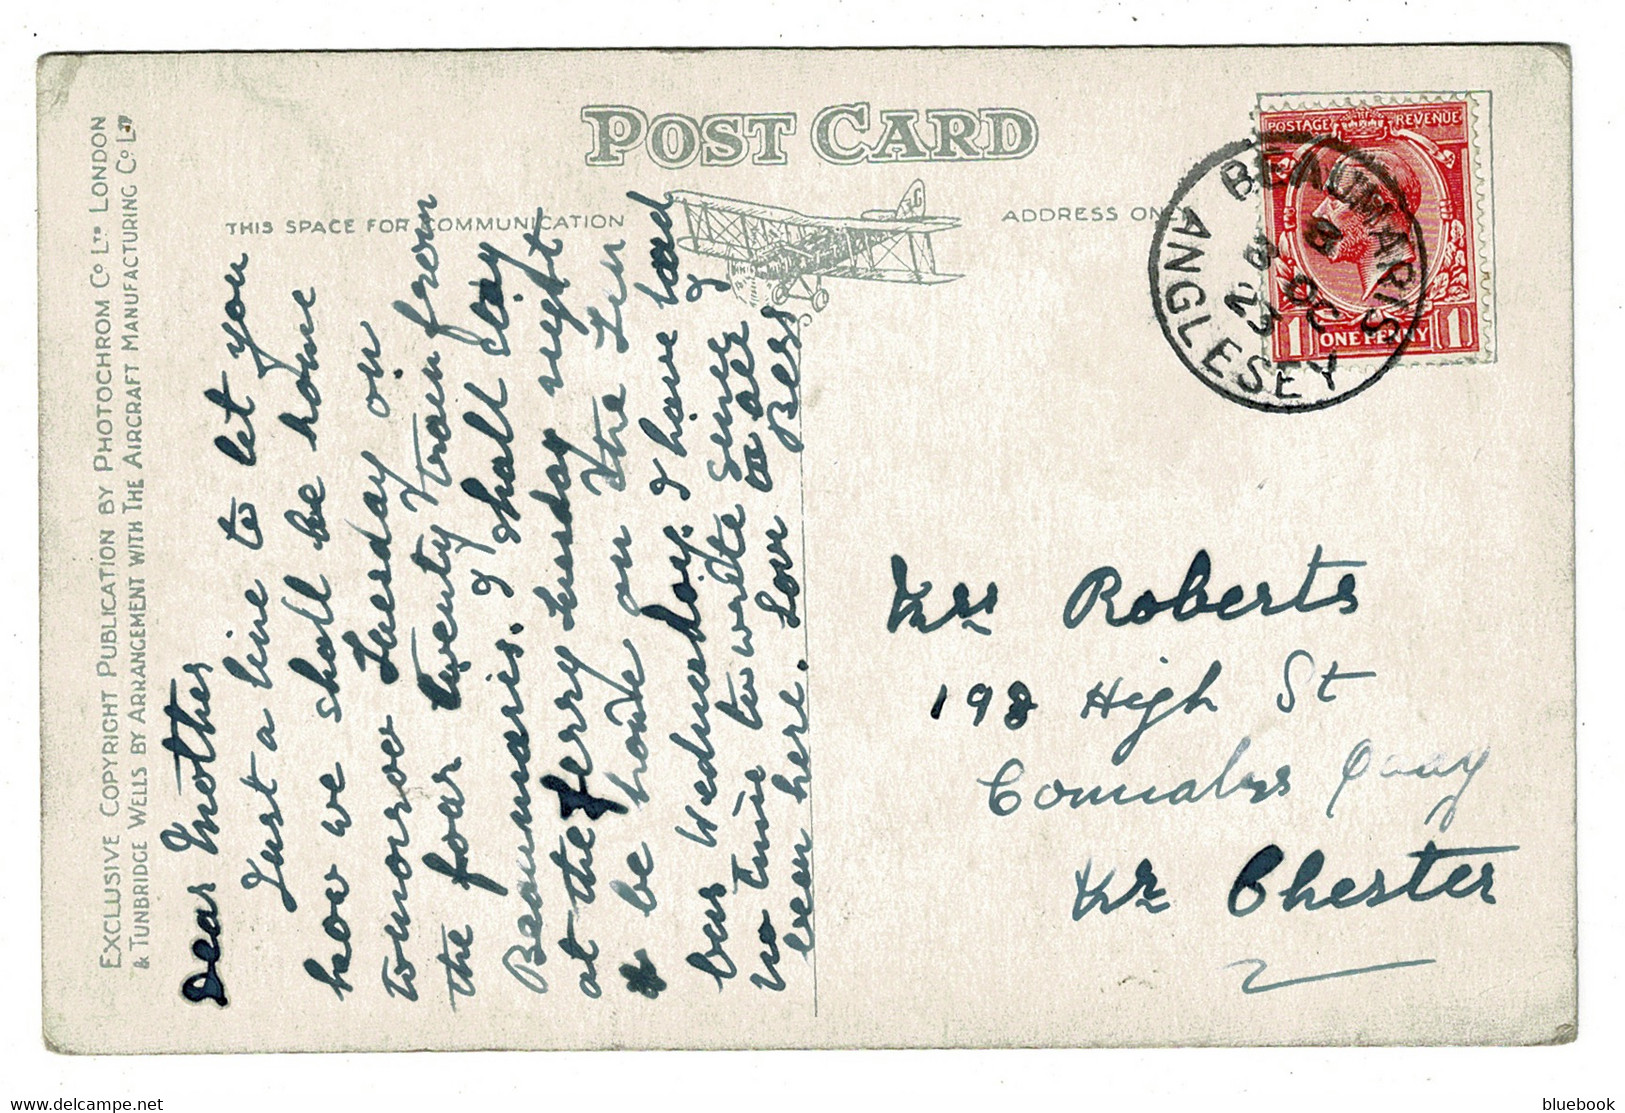 POST CARD
THIS SPACE FOR COMMUNICATION
ADDRESS ON
EXCLUSIVE COPYRIGHT PUBLICATION BY PHOTOCHROM Co LTD LONDON
& TUNBRIDGE WELLS BY ARRANGEMENT WITH THE AIRCRAFT MANUFACTURING Co LTD
G
POSTAGE REVENUE
1 ONE PENNY 1
BEAUMARIS
ANGLESEY
OC
23
Dear Mother
Just a line to let you
know we shall be home
tomorow Tuesday on
the four twenty train from
Beaumaris. I shall stay
at the ferry tuesday night
be home on the
bus Wednesday. I have had
no time to write since I
been here. Love to all
Bess
Mrs Roberts
198 High St
Connahs Quay
Nr Chester
bluebook